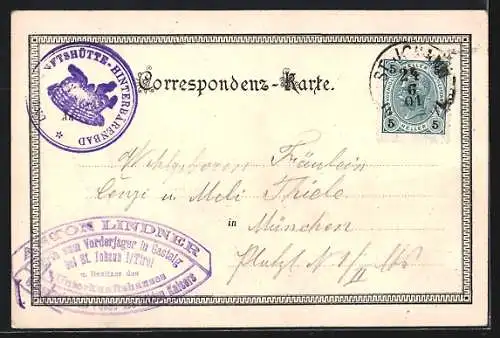 FTSHÜTTE-HINTERBÄRENBAD
Correspondenz-Karte.
ST. JOHANN
24
6
01
5 HELLER 5
Wohlgeboren Fräulein
Cenzi u. Meli Thiele
in
München
LINDNER
zum Vorderjager in Gasteig
bei St. Johann i/Tirol
u. Besitzer des
Unterkunftshauses
Kaisers